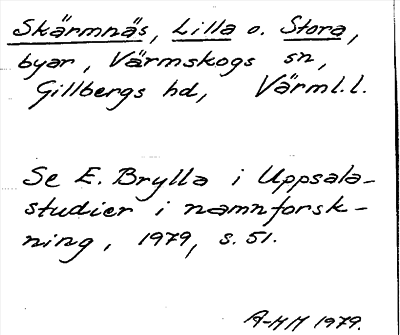 Skärmnäs, Lilla o. Stora,
byar, Värmskogs sn,
Gillbergs hd, Värml.l.
Se E. Brylla i Uppsala-
studier i namnforsk-
ning, 1979, s. 51.
A-MM 1979.